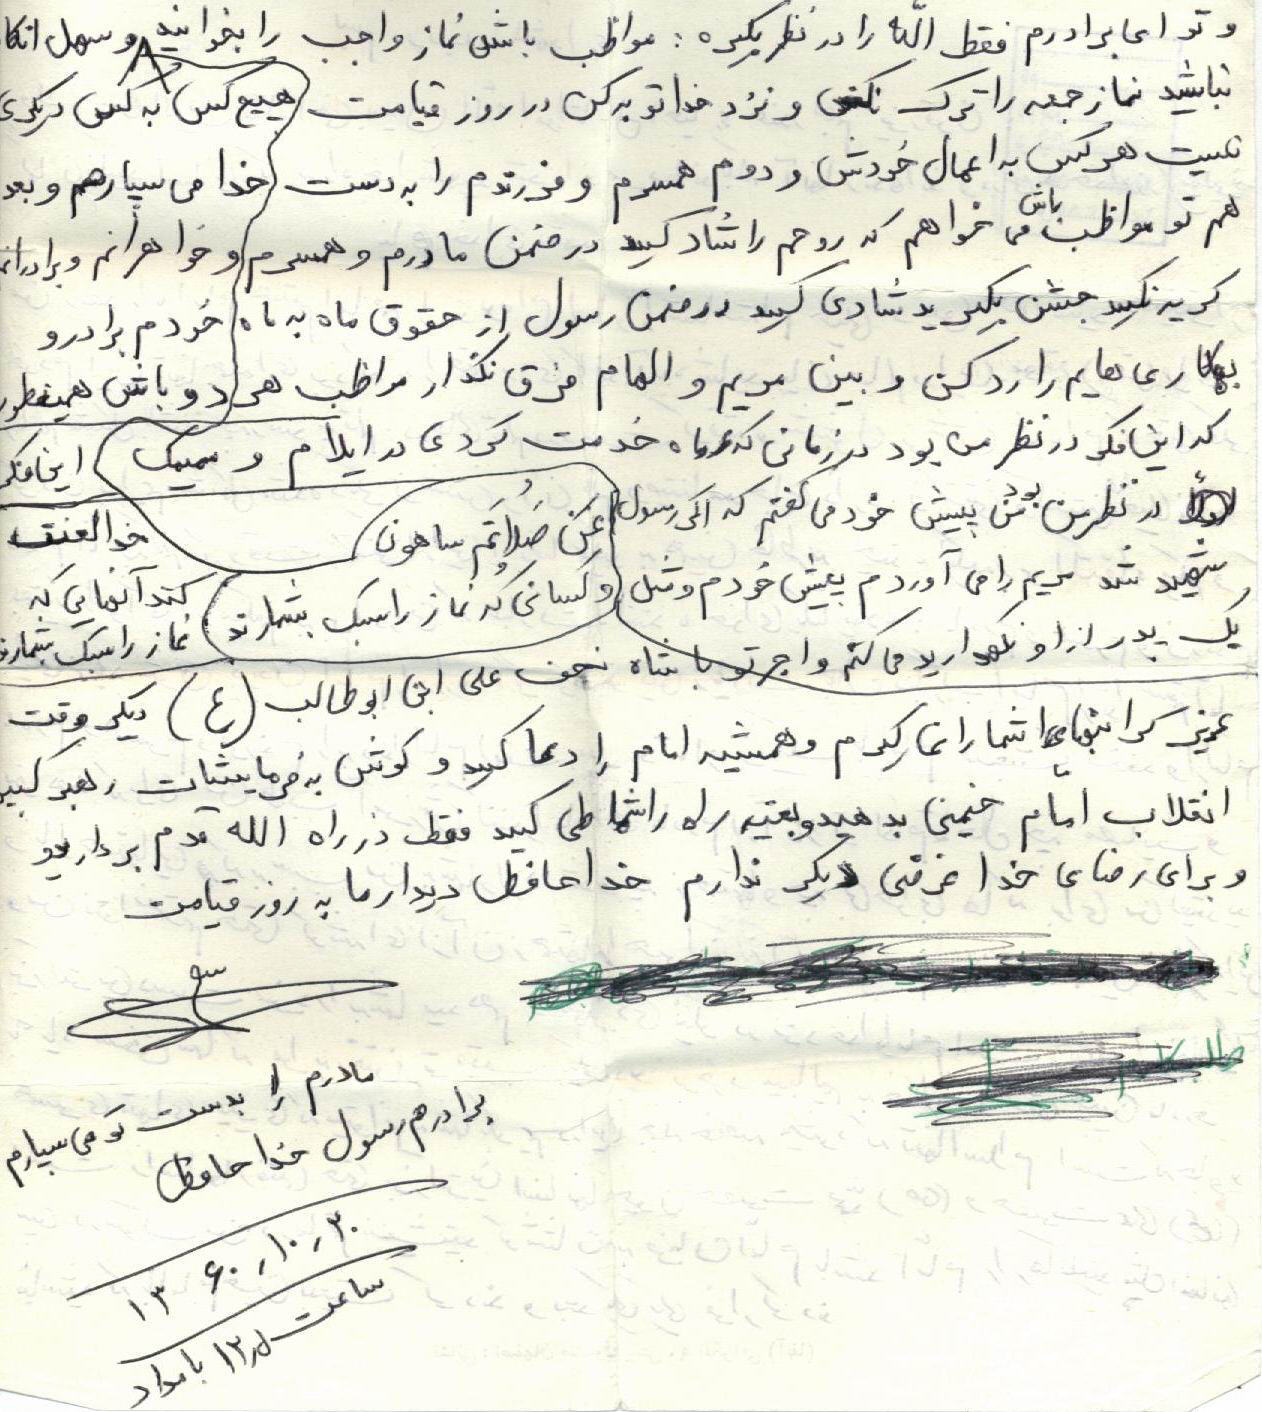 و تو ای برادرم فقط الله را در نظر بگیره : مواظب باش نماز واجب را بخوانید و سهل انکا
نباشید نماز جمعه را ترک نکنی و نزد خدا توبه کن در روز قیامت هیچ کس به کس دیگری
نیست هر کس به اعمال خودش و دوم همسرم و فرزندم را به دست خدا می سپارهم و بعد
هم تو مواظب باش می خواهم که روحم را شاد کنید در ضمن مادرم و همسرم و خواهرانم و برادرانم
گریه نکنید جشن بگیرید شادی کنید در ضمن رسول از حقوق ماه به ماه خودم برادر و
بهکاری هایم را رد کن و بین مریم و الهام فرق نگذار مواظب هر دو باش همینطور
که این فکر در نظر من بود در زمانی که ماه خدمت کردی در ایلام و میمک این فکر
در نظر من بود من پیش خود می گفتم که اگر رسول
عن صلاتهم ساهون
خدا لعنت
شهید شد مریم را می آوردم پیش خودم و مثل
و کسانی که نماز را سبک بشمارند
کند آنهایی که
یک پدر از او نگهداری می کنم و اجر تو با شاه نجف علی ابن ابوطالب (ع) دیگر وقت
نماز را سبک بشمارند
عزیز گرانبهای شما را نمی گیرم و همیشه امام را دعا کنید و گوش به فرمایشات رهبر کبیر
انقلاب امام خمینی بدهید و بقیه راه را شما طی کنید فقط در راه الله قدم بردارید و
و برای رضای خدا عرضی دیگر ندارم خدا حافظ دیدار ما به روز قیامت
مادرم را بدست تو می سپارم
برادرهم رسول خدا حافظ
۱۳۶۰٫۱۰٫۳۰
ساعت ۱۲٫۵ بامداد